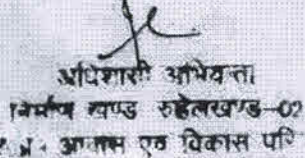 अधिशासी अभियन्ता
निर्माण खण्ड रुहेलखण्ड-02
आवास एवं विकास परि